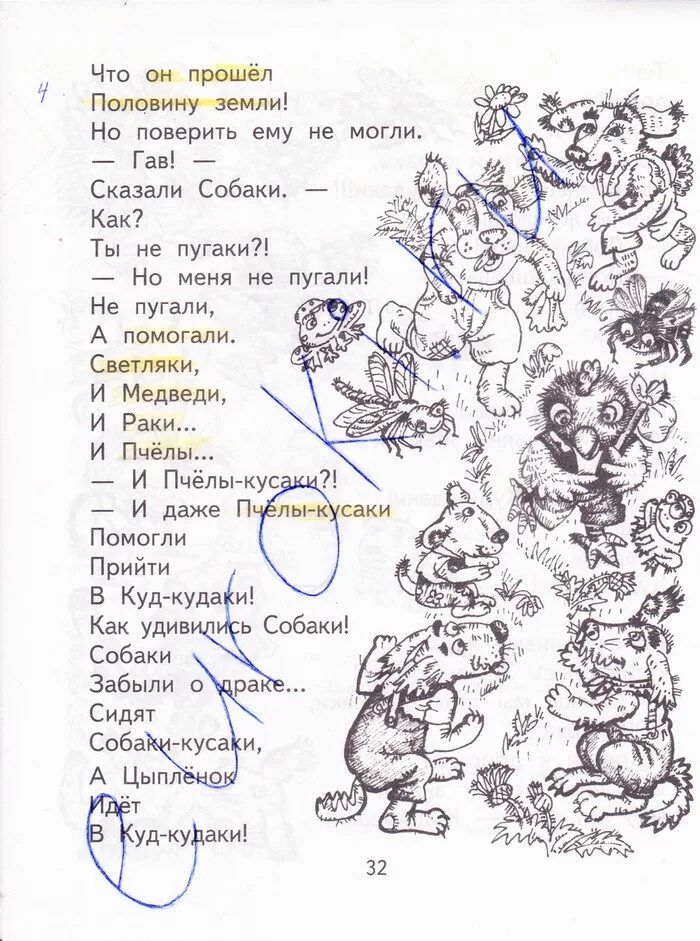 4
Что он прошёл
Половину земли!
Но поверить ему не могли.
— Гав! —
Сказали Собаки, —
Как?
Ты не пугаки?!
— Но меня не пугали!
Не пугали,
А помогали.
Светляки,
И Медведи,
И Раки...
И Пчёлы...
— И Пчёлы-кусаки?!
— И даже Пчёлы-кусаки
Помогли
Прийти
В Куд-кудаки!
Как удивились Собаки!
Собаки
Забыли о драке...
Сидят
Собаки-кусаки,
А Цыплёнок
Идёт
В Куд-кудаки!
32